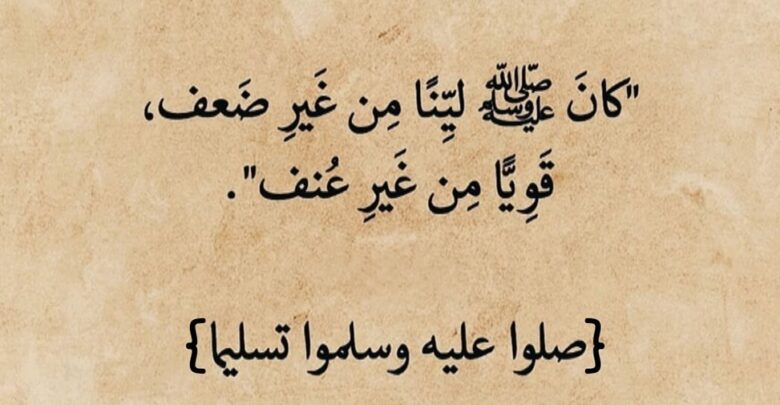 "كانَ ﷺ ليِّنًا مِن غَيرِ ضَعف،
قَوِيًّا مِن غَيرِ عُنف".
{صلوا عليه وسلموا تسليما}